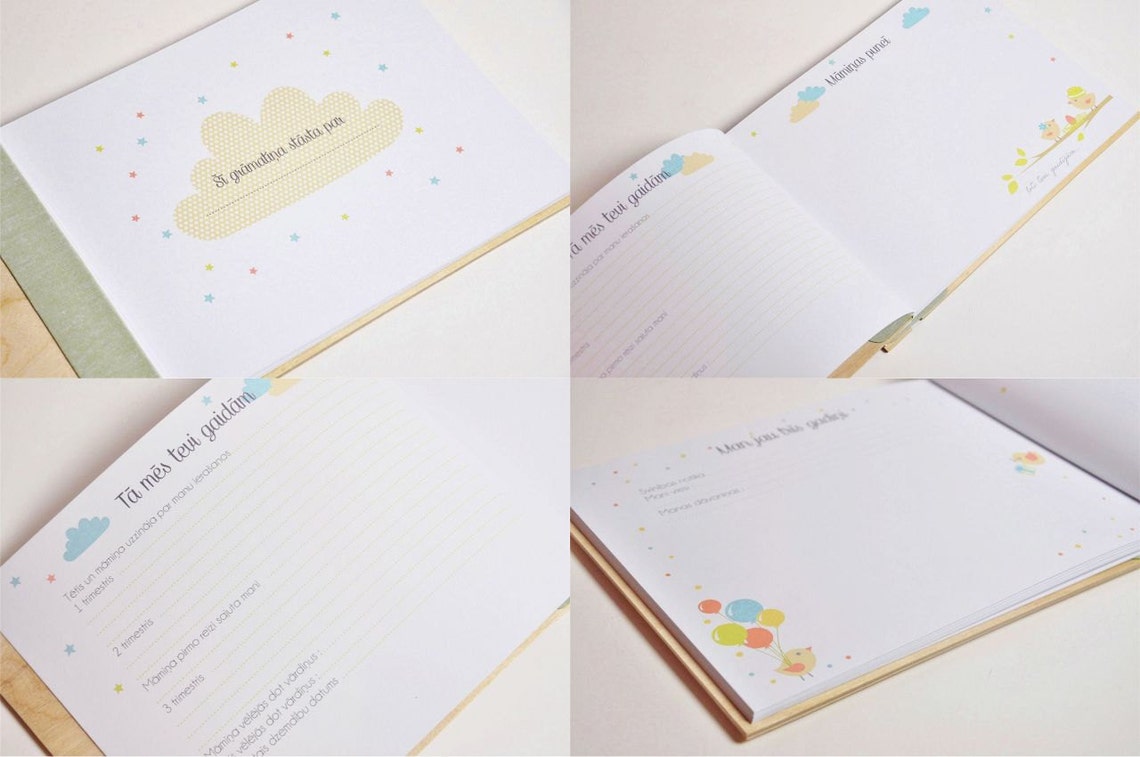 Šī grāmatiņa stāsta par
Māmiņas puncī
Tā mēs tevi gaidām
1 trimestris
Tā mēs tevi gaidām
Tētis un māmiņa uzzināja par manu ierašanos
1 trimestris
2 trimestris
Māmiņa pirmo reizi sajuta mani
3 trimestris
Māmiņa vēlējās dot vārdiņus :
vēlējās dot vārdiņus :
dzemdību datums
Man jau būs gadiņi
Svinības notika
Mani viesi
Manas dāvaniņas :